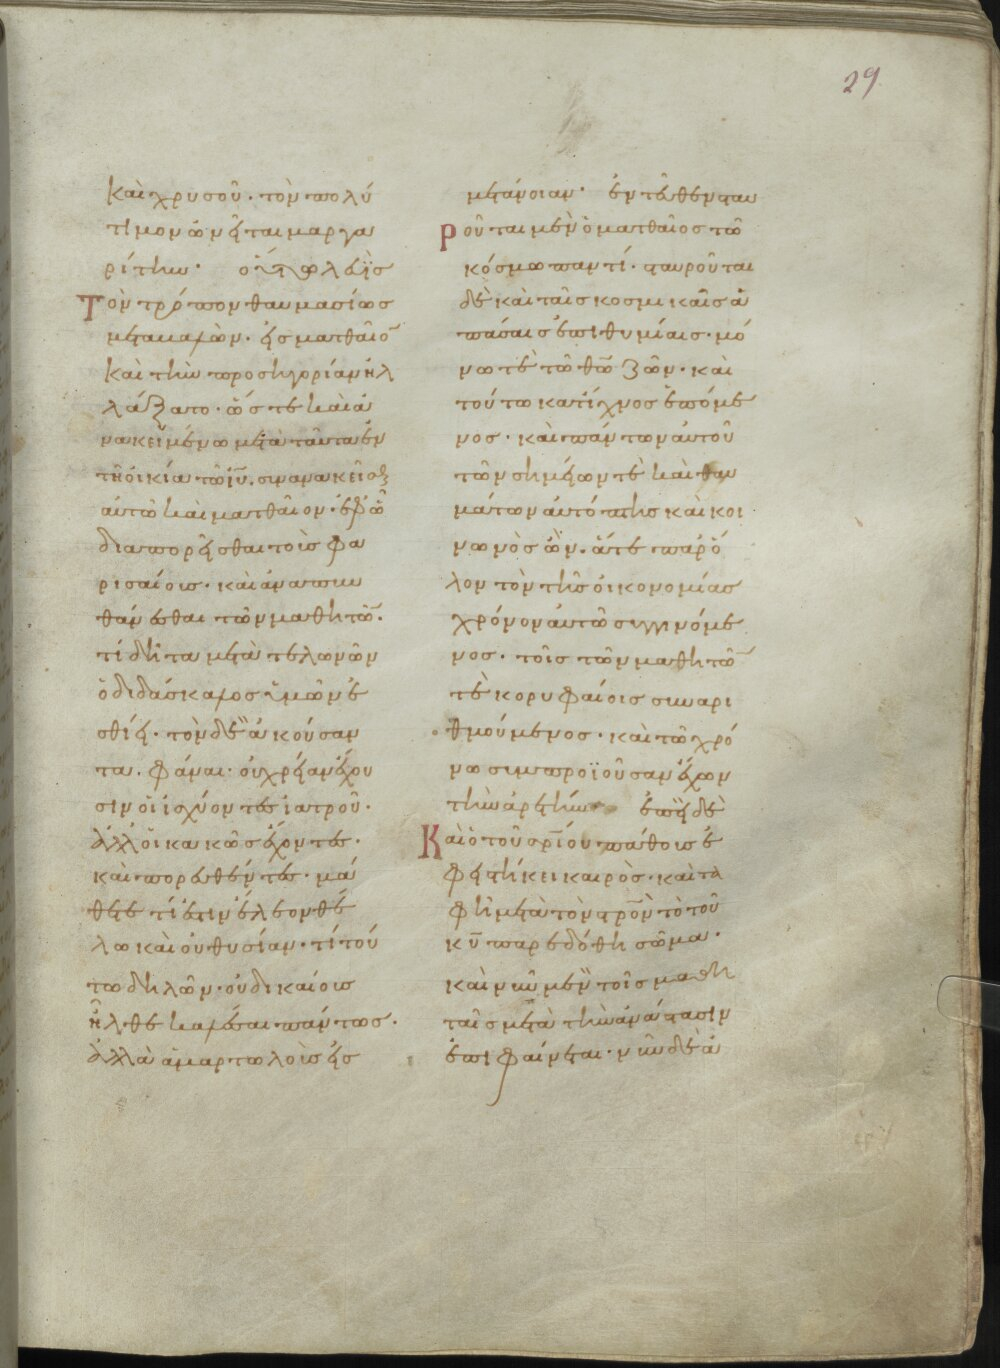 29
καὶ χρυσοῦ · τὸν πολύ
τιμον ὠνεῖται μαργα
ρίτην ·
Τὸν τρόπον θαυμασίως
μεταμαλὼν · εἰς ματθαῖο̅
καὶ τὴν προσηγορίαν ἠλ
λάξατο · ὥς τε καὶ ἀ
νακειμένω μετὰ ταῦτα ἐν
τῆ οἰκία τῶ ιυ̅ . συνανακεῖσθ
αὐτῶ καὶ ματθαῖον · ἐφ' ὧ
διαπορεῖσθαι τοῖς φα
ρισαίοις · καὶ ἀναπυν
θάνεσθαι τῶν μαθητῶ̅ .
τί δῆτα μετὰ τελωνῶν
ὁ διδάσκαλος ὑμῶν ἐ
σθίει · τὸν δὲ ἀκούσαν
τα . φάναι · οὐ χρείαν ἔχου
σιν οἱ ἰσχύοντες ἰατροῦ ·
ἀλλ' οἱ κακῶς ἔχοντες ·
καὶ πορευθέντες · μά
θετε τί ἐστιν ἔλεον θέ
λω καὶ οὐ θυσίαν · τί τού
τω δηλῶν · οὐ δικαίους
ἦλθε καλέσαι πάντως ·
ἀλλὰ ἁμαρτωλοὺς εἰς
μετάνοιαν · ἐντεῦθεν σταυ
Ροῦται μὲν ὁ ματθαῖος τῶ
κόσμω παντί · σταυροῦται
δὲ καὶ ταῖς κοσμικαῖς ἁ
πάσαις ἐπιθυμίαις · μό
νω τὲ τῶ θω̅ ζῶν · καὶ
τούτω κατίχνος ἑπόμε
νος · καὶ πάντων αὐτοῦ
τῶν σημείων τὲ καὶ θαυ
μάτων αὐτόπτης καὶ κοι
νωνὸς ὤν . ἅτε παρ' ὅ
λον τὸν τῆς οἰκονομίας
χρόνον αὐτῶ συγγινόμε
νος · τοῖς τῶν μαθητῶ̅
τὲ κορυφαίοις συναρι
θμούμενος · καὶ τῶ χρό
νω συμπροϊοῦσαν ἔχων
τὴν ἀρετήν ἐπεὶ δὲ
Καὶ ὁ τοῦ σρι̅ου πάθους ἐ
φειστήκει καιρὸς · καὶ τε
φῆ μετὰ τὸν στρο̅ν τὸ τοῦ
κυ̅ παρεδόθη σῶμα ·
καὶ νῦν μὲν τοῖς μαθη
ταῖς μετὰ τὴν ἀνάστασιν
ἐπιφαίνεται · νῦν δὲ ἀ